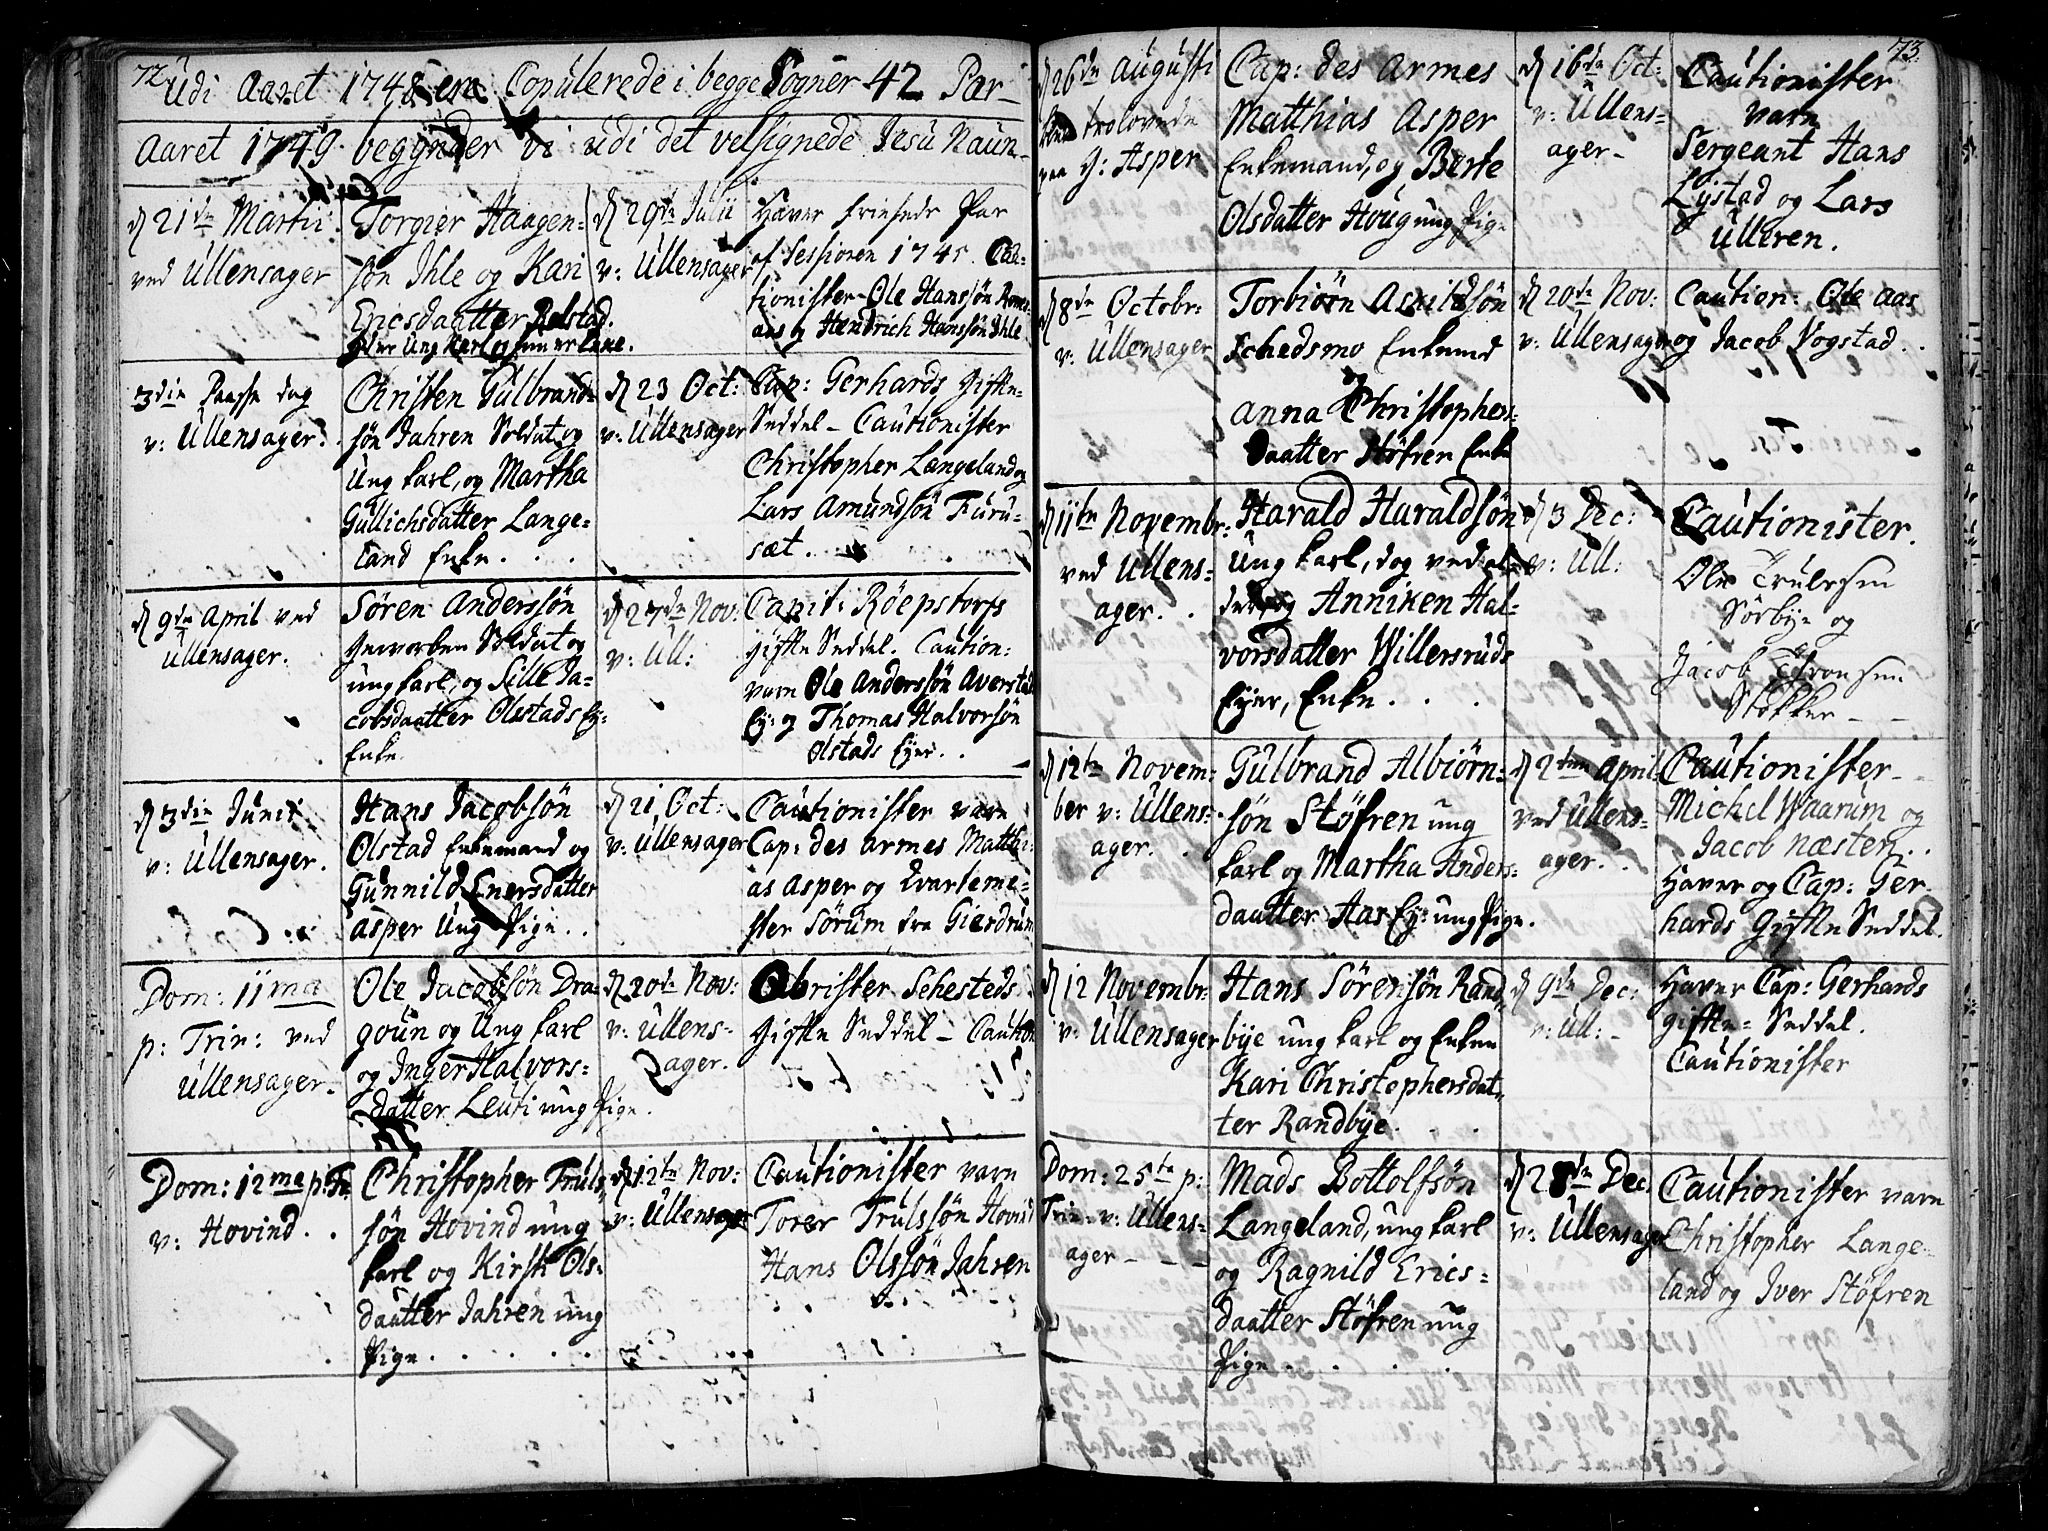 72
Udi Aaret 1748 ere Copulerede i begge Sogner 42 Par
Aaret 1749. begynder vi udi det velsignede Jesu Naun
d 21de Martii
ved Ullensager
Torgier Haagen-
søn Ihle og Kari
Ericsdaatter Relstad.
er Ung Karl og hun er Enke.
d 29de Julii
v: Ullensager
Haver friesedr Par
af Sessionen 1745. Cau-
tionister Ole Hanssøn
aas og Hendrich Hanssøn Ihle
3die Paaske dag
v: Ullensager.
Christen Gulbrand-
søn Jahren Soldat og
Ung karl, og Martha
Gullichsdatter Lange-
land Enke . . .
d 23 Oct:
v: Ullensager
Cap: Gerhards Gifte-
Seddel – Cautionister
Christopher Langeland og
Lars Amundsøn Furu-
sæt.
d 9de April ved
Ullensager.
Søren Anderssøn
Geworben Soldat og
ung karl, og Sille Ja-
cobsdaatter Olstads Ey:
Enke
d 27de Nov:
v: Ull:
Capit: Röepstorfs
Gifte Seddel. Caution:
varn Ole Anderssøn Averstad
Ey: og Thomas Halvorsøn
Olstads Eyer. .
d 3die Junii
v: Ullensager.
Hans Jacobsøn
Olstad Enkemand og
Gunnild Enersdatter
Asper Ung Pige . .
d 21 Oct:
v: Ullensager
Cautionister varn
Cap: des armes Matthi-
as Asper og Qvarteme-
ster Sørum fra Gierdrum
Dom: 11ma
p: Trin: ved
Ullensager
Ole Jacobsøn Dra-
goun og Ung karl
og Inger Halvors-
datter Leuti ung Pige.
d 20de Nov:
v: Ullens-
ager.
Obrister Sehesteds
Gifte Seddel – Caution
Dom: 12ma p: Tr:
v: Hovind . .
Christopher Truls-
søn Hovind ung
karl og Kirsti Ols-
daatter Jahren ung
Pige . . . . .
d 12te Nov:
v: Ullensager
Cautionister varn
Torer Trulssøn Hovind
Hans Olssøn Jahren
73.
d 26de Augusti
trolovede
paa G: Asper
Cap: des Armes
Matthias Asper
Enkemand, og Berte
Olsdatter Houg ung Pige
d 16de Oct:
v: Ullens-
ager –
Cautionister
varn
Sergeant Hans
Lystad og Lars
Ulleren.
d 8de Octobr:
v: Ullensager
Torbiørn Askildsøn
Schedsmo Enkemd
Anna Christophers-
daatter Støfren Enke
d 20de Nov:
v: Ullensager
Caution: Ole Aas
og Jacob Vogstad . .
d 11te Novembr:
ved Ullens-
ager. .
Harald Haraldsøn
Ung karl, dog ved al-
der og Anniken Hal-
vorsdatter Willersruds
Eyer, Enke . . .
d 3 Dec:
v: Ull:
Cautionister.
Ole Trulssen
Sørbye og
Jacob Thronsen
Stokker – –
d 12te Novem-
ber v: Ullens-
ager. .
Gulbrand Albiørn-
søn Støfren ung
karl og Martha Anders-
daatter Aas Ey: ung Pige.
d 2den April
ved Ullens-
ager. .
Cautionister
Michel Waarum og
Jacob Næsten . .
Haver og Cap: Ger-
hards Gifte Seddel.
d 12 Novembr:
v: Ullensager
Hans Sørensøn Rand-
bye ung karl og Enken
Kari Christophersdat-
ter Randbye . . .
d 9de Dec:
v: Ull: –
Haver Cap: Gerhards
gifte- Seddel.
Cautionister
Dom: 25te p:
Trin: v: Ullens-
ager – – –
Mads Bottolfsøn
Langeland, ung karl
og Ragnild Erics-
daatter Støfren ung
Pige . . . .
d 28de Dec:
v: Ullensager
Cautionister varn
Christopher Lange-
land og Iver Støfren